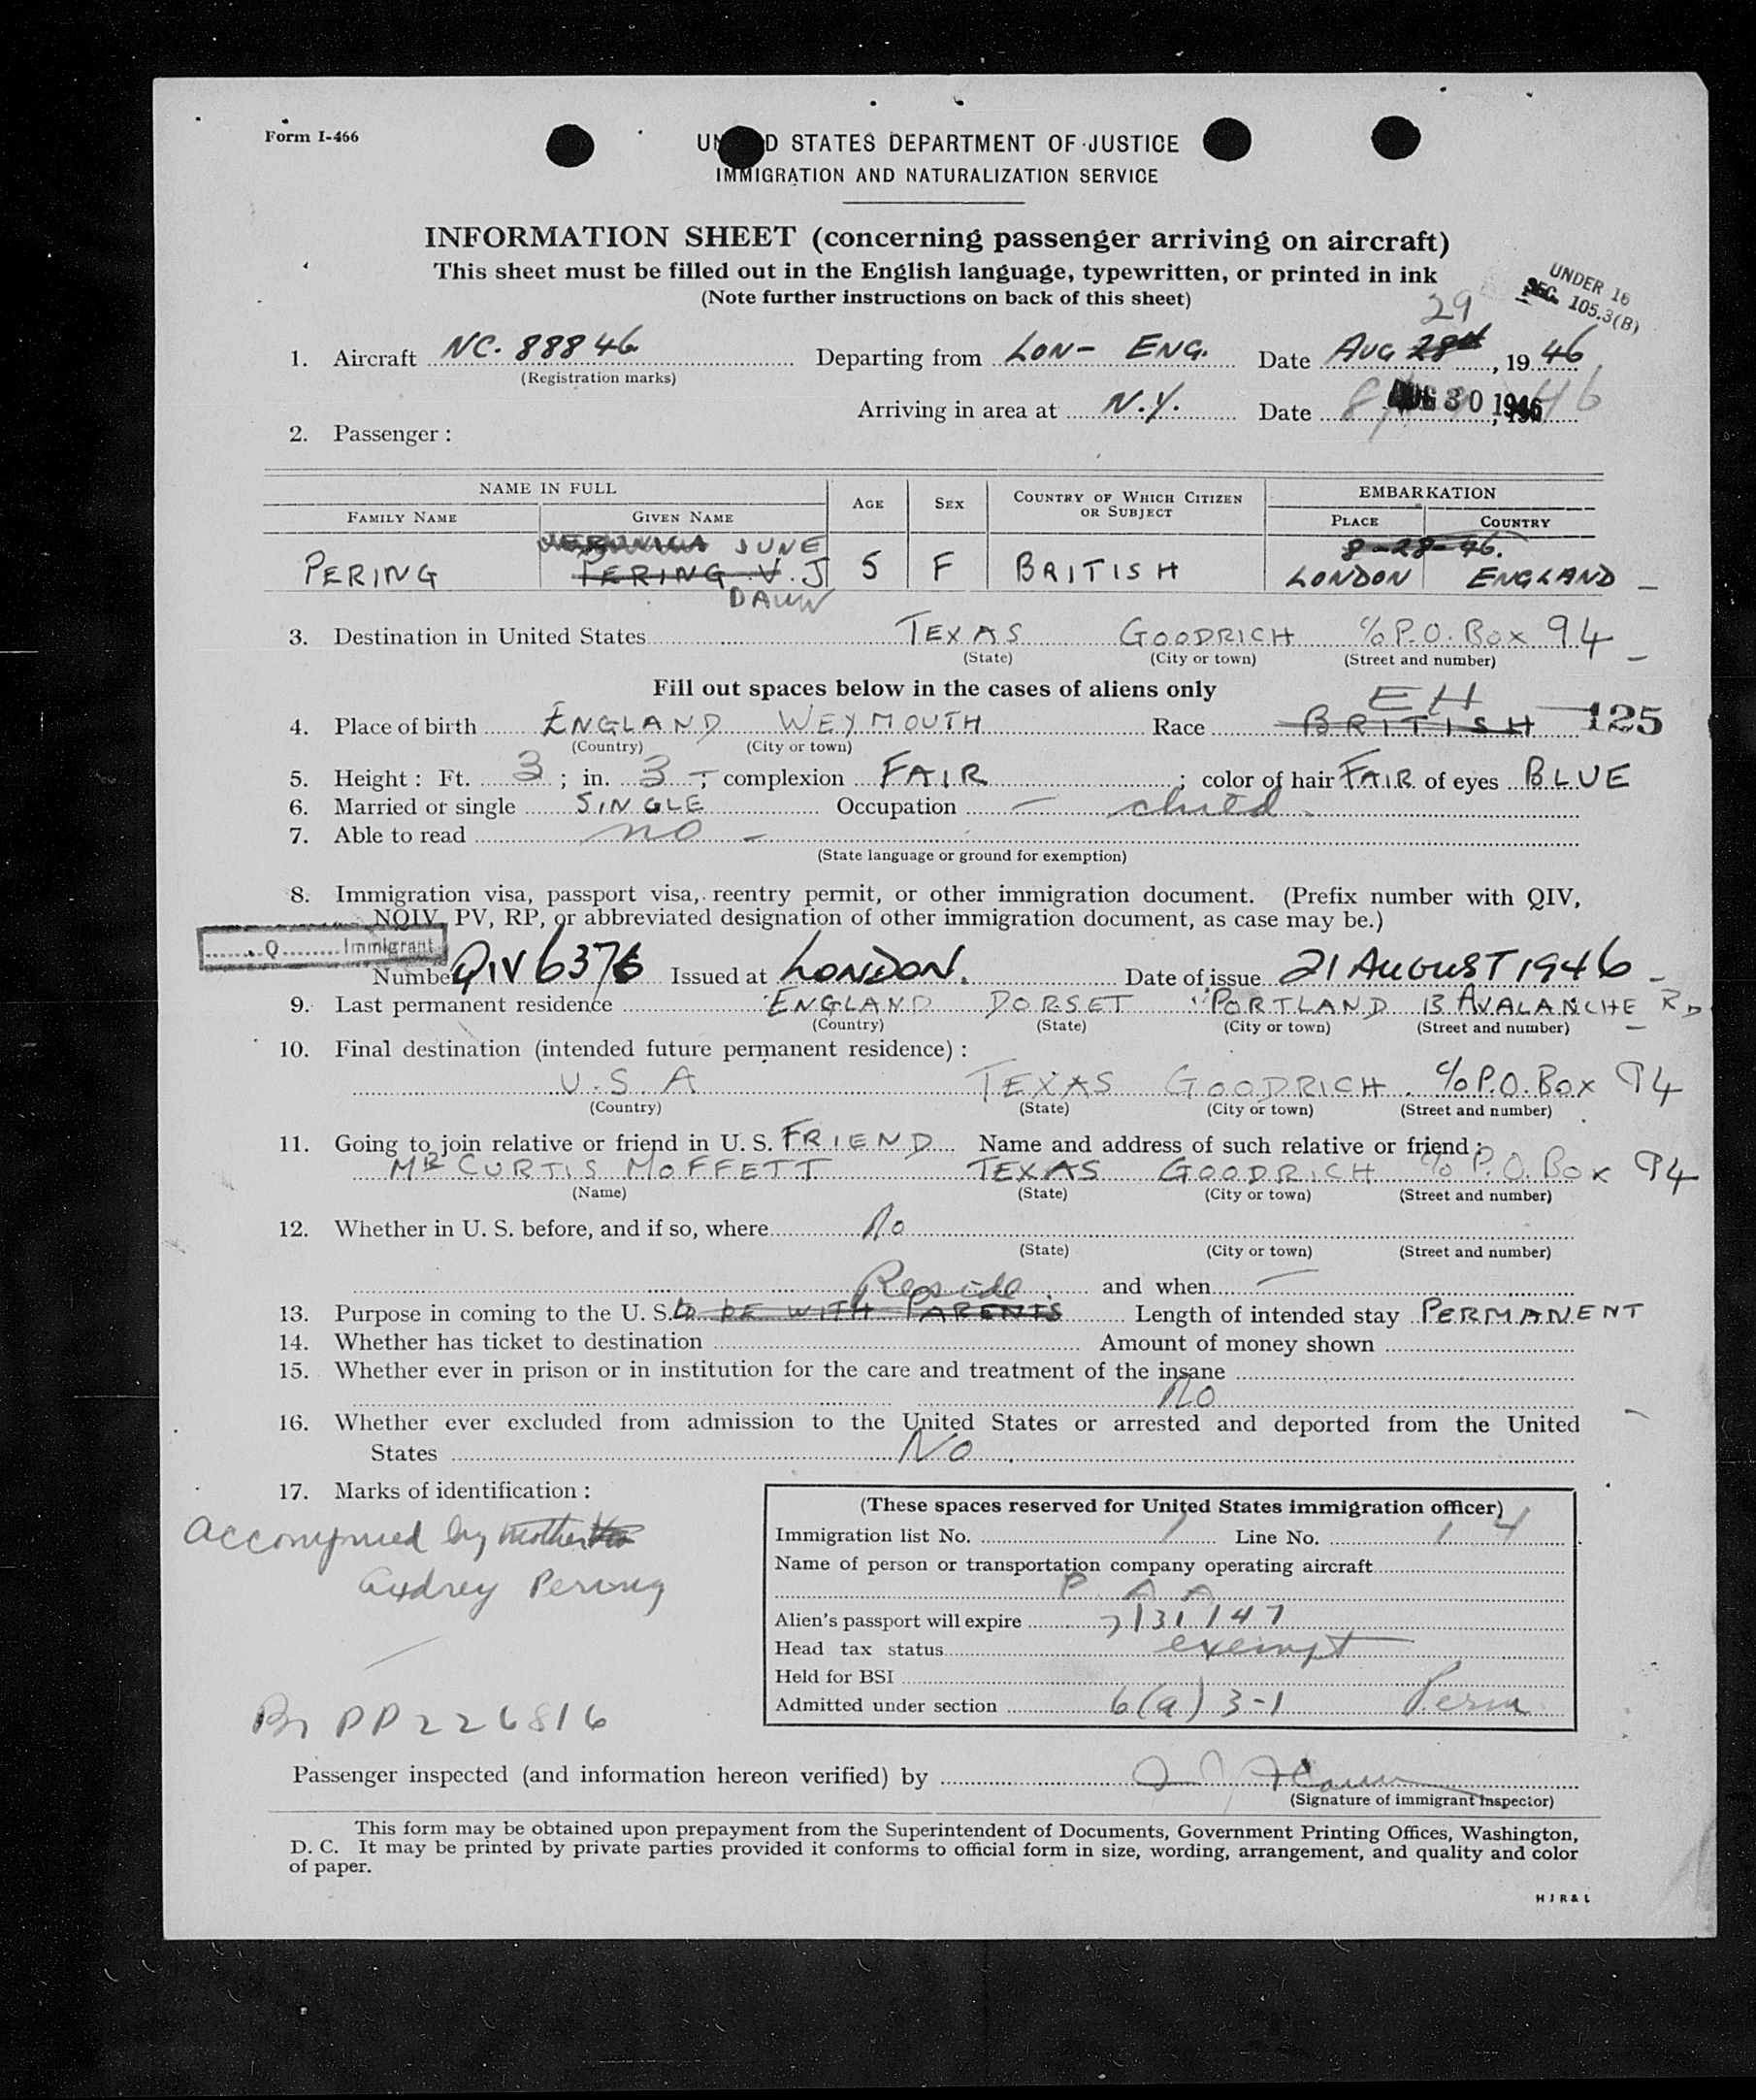 Form I-466
UNITED STATES DEPARTMENT OF JUSTICE
IMMIGRATION AND NATURALIZATION SERVICE
INFORMATION SHEET (concerning passenger arriving on aircraft)
This sheet must be filled out in the English language, typewritten, or printed in ink
(Note further instructions on back of this sheet)
UNDER 16
SEC. 105.3(B)
29
1. Aircraft NC. 88846 Departing from LON- ENG. Date AUG 28th, 19 46
(Registration marks)
Arriving in area at N.Y. Date AUG 30 1946
2. Passenger:
NAME IN FULL AGE SEX COUNTRY OF WHICH CITIZEN OR SUBJECT EMBARKATION
FAMILY NAME GIVEN NAME PLACE COUNTRY
VERONICA JUNE 8-28-46.
PERING PERING V. J 5 F BRITISH LONDON ENGLAND
DAWN
3. Destination in United States TEXAS GOODRICH c/o P.O. BOX 94
(State) (City or town) (Street and number)
Fill out spaces below in the cases of aliens only
EH
4. Place of birth ENGLAND WEYMOUTH Race BRITISH 125
(Country) (City or town)
5. Height: Ft. 3; in. 3; complexion FAIR; color of hair FAIR of eyes BLUE
6. Married or single SINGLE Occupation — child
7. Able to read no
(State language or ground for exemption)
8. Immigration visa, passport visa, reentry permit, or other immigration document. (Prefix number with QIV,
NQIV, PV, RP, or abbreviated designation of other immigration document, as case may be.)
Q Immigrant
Number QIV 6376 Issued at LONDON. Date of issue 21 AUGUST 1946
9. Last permanent residence ENGLAND DORSET PORTLAND 13 AVALANCHE RD
(Country) (State) (City or town) (Street and number)
10. Final destination (intended future permanent residence):
U.S.A TEXAS GOODRICH. c/o P.O. BOX 94
(Country) (State) (City or town) (Street and number)
11. Going to join relative or friend in U. S. FRIEND Name and address of such relative or friend:
MR CURTIS MOFFETT TEXAS GOODRICH c/o P.O. BOX 94
(Name) (State) (City or town) (Street and number)
12. Whether in U. S. before, and if so, where No
(State) (City or town) (Street and number)
Reside and when —
13. Purpose in coming to the U. S. to BE WITH PARENTS Length of intended stay PERMANENT
14. Whether has ticket to destination Amount of money shown
15. Whether ever in prison or in institution for the care and treatment of the insane
No
16. Whether ever excluded from admission to the United States or arrested and deported from the United
States No
17. Marks of identification:
Accompnied by mother
Audrey Pering
Br PP 226816
(These spaces reserved for United States immigration officer)
Immigration list No. 1 Line No. 1 4
Name of person or transportation company operating aircraft
P. A A
Alien's passport will expire 7/31/47
Head tax status exempt
Held for BSI
Admitted under section 6(a) 3-1 Perm
Passenger inspected (and information hereon verified) by
(Signature of immigrant inspector)
This form may be obtained upon prepayment from the Superintendent of Documents, Government Printing Offices, Washington,
D. C. It may be printed by private parties provided it conforms to official form in size, wording, arrangement, and quality and color
of paper.
H J R & L